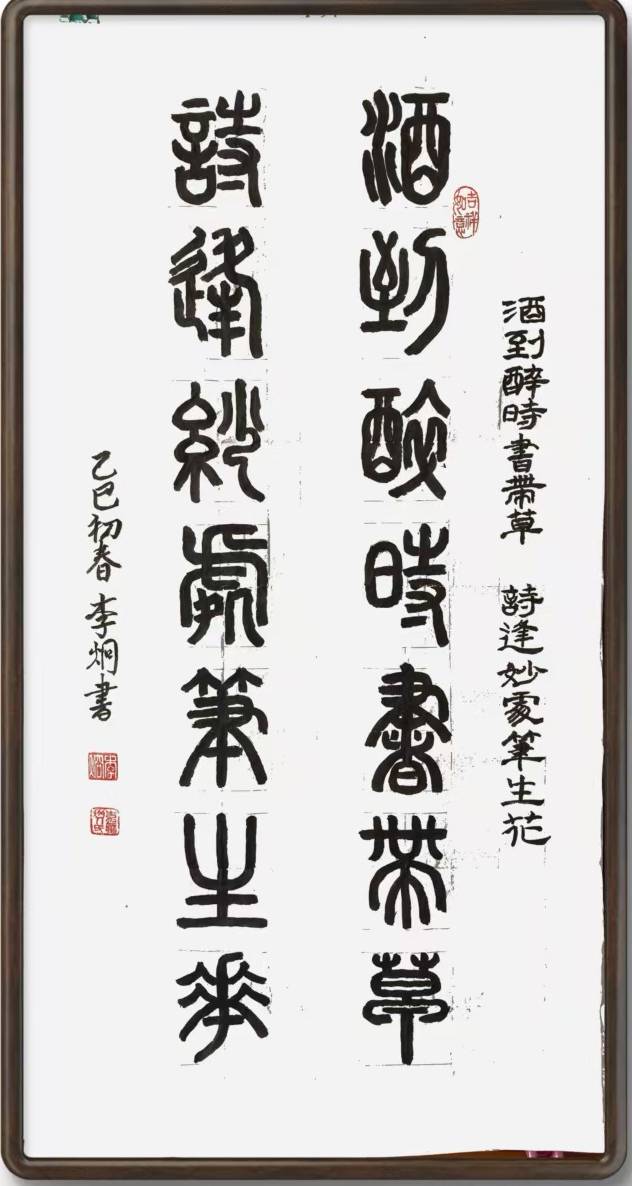 酒到醉時書帶草 詩逢妙處筆生花
酒到醉時書帶草
吉祥如意
詩逢妙處筆生華
乙巳初春 李炯書
李炯